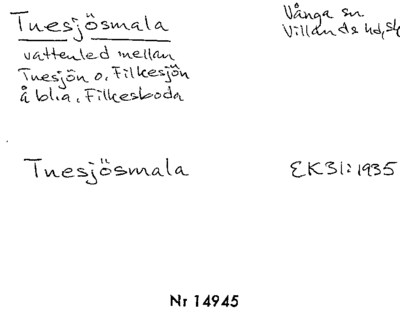 Tuesjösmala
Vånga sn
Villands hd, sk
vattenled mellan
Tuesjön o. Filkesjön
å bl.a. Filkesboda
Tuesjösmala
EK31:1935
Nr 14945